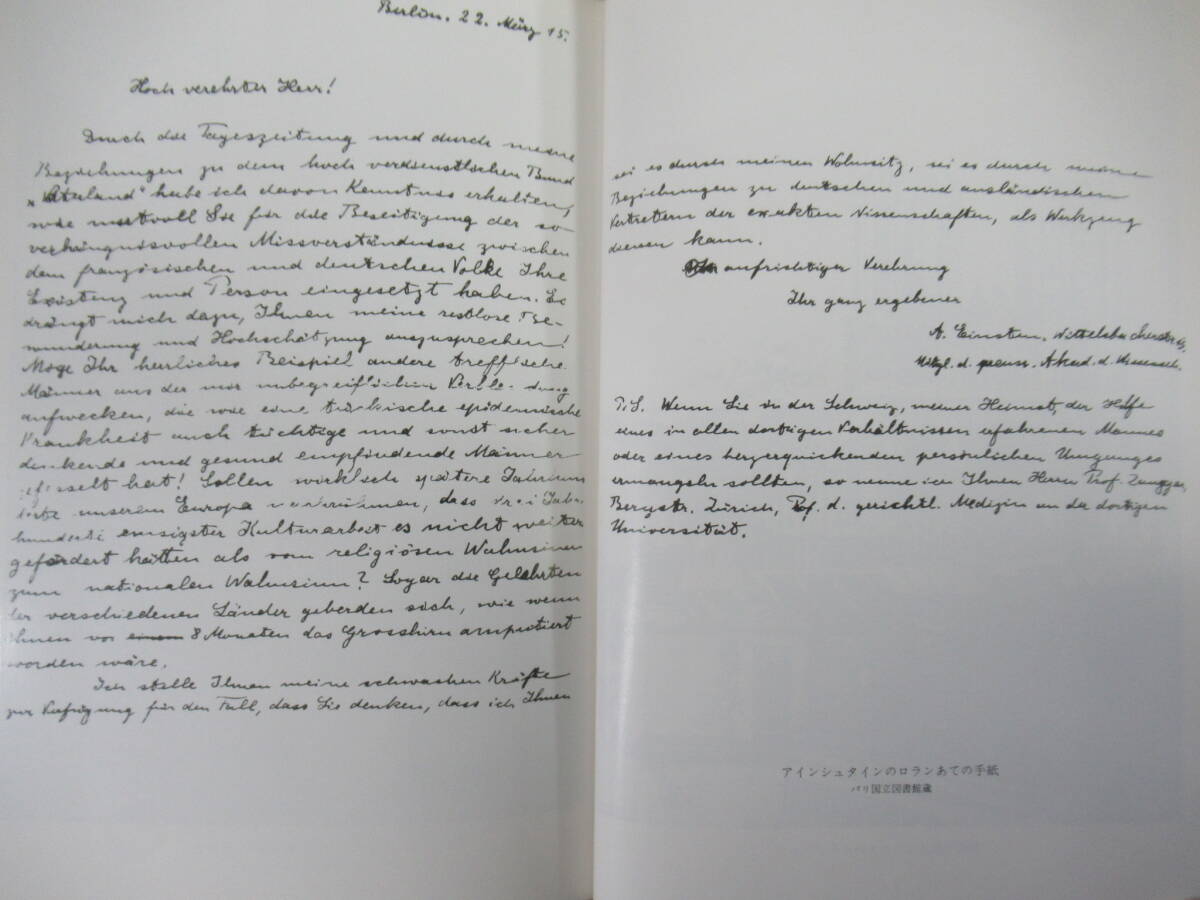 Berlin. 22. März 15.
Hoch verehrter Herr!
Durch die Tageszeitung und durch meine
Beziehungen zu dem hoch verdienstlichen Bund
habe ich davon Kenntnis erhalten,
wie mutvoll Sie für die Beseitigung der so
verhängnisvollen Missverständnisse zwischen
dem französischen und deutschen Volke Ihre
Existenz und Person eingesetzt haben. Es
drängt mich dazu, Ihnen meine restlose Be-
wunderung und Hochschätzung auszusprechen!
Möge Ihr herrliches Beispiel andere treffliche
Männer aus der mir unbegreiflichen Verblendung
aufwecken, die wie eine tückische epidemische
Krankheit auch tüchtige und sonst sicher
denkende und gesund empfindende Männer
gefesselt hat! Sollen wirklich spätere Jahrhun-
derte unserem Europa nachrühmen, dass drei Jahr-
hunderte emsigster Kulturarbeit es nicht weiter
gefördert hätten als vom religiösen Wahnsinn
zum nationalen Wahnsinn? Sogar die Gelehrten
der verschiedenen Länder geberden sich, wie wenn
ihnen vor 8 Monaten das Grosshirn amputiert
worden wäre.
Ich stelle Ihnen meine schwachen Kräfte
zur Verfügung für den Fall, dass Sie denken, dass ich Ihnen
sei es durch meinen Wohnsitz, sei es durch meine
Beziehungen zu deutschen und ausländischen
Vertretern der exakten Wissenschaften, als Werkzeug
dienen kann.
In aufrichtiger Verehrung
Ihr ganz ergebener
A. Einstein. Wittelsbacherstr.
Mitgl. d. preuss. Akad. d. Wissensch.
P.S. Wenn Sie in der Schweiz, meiner Heimat, der Hilfe
eines in allen dortigen Verhältnissen erfahrenen Mannes
oder eines herzerquickenden persönlichen Umganges
ermangeln sollten, so nenne ich Ihnen Herrn Prof. Zangger,
Bergstr. Zürich, Prof. d. gerichtl. Medizin an der dortigen
Universität.
アインシュタインのロランあての手紙
パリ国立図書館蔵